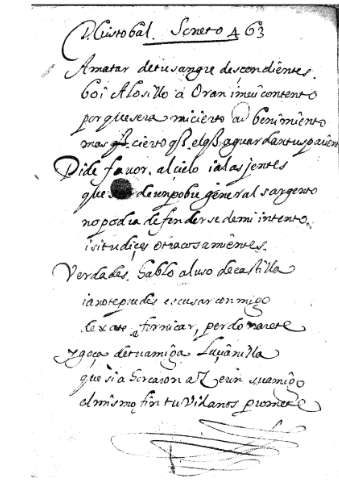 D. Cristobal. Soneto 463
A matar de tu sangre descendientes.
boi Alosillo a Oran imui contento
porque sera mi cierto ad benimiento
mas cierto q̃ el q̃ aguardan tus parien
Pide favor, al cielo ia las jentes
que de un pobre general sargento
no podia defenderse de mi intento.
i si tu diçes otra cosa mientes.
Verdades. hablo al uso de castilla
ia no te puedes escusar conmigo
dexate fornicar, perdonarete
y goça de tu amiga Luuanilla
que si a horcaron a un su amigo
el mismo fin tu Vida nos promete